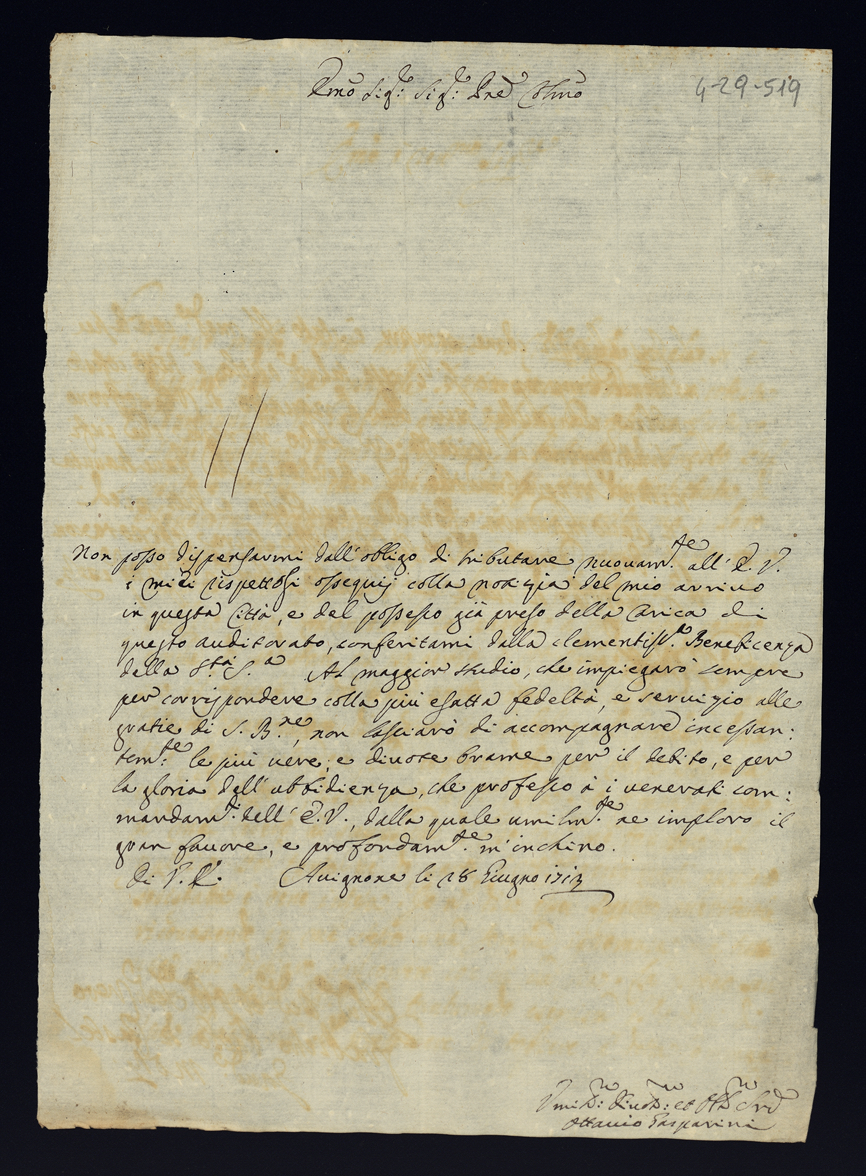 Emo Sig:re Sig:re Pne Colmo
4-29-519
Non posso dispensarmi dall'obligo di tributare nuouam.te all'E.V.
i miei rispettosi ossequij colla notizia del mio arriuo
in questa Città, e del possesso già preso della carica di
questo auditorato, conferitami dalla clementiss.a Beneficenza
della S.tà S.a Al maggior studio, che impiegarò sempre
per corrispondere colla più esatta fedeltà, e seruizio alle
gratie di S. B.ne, non lasciarò di accompagnare incessan:
tem.te le più uere, e diuote brame per il debito, e per
la gloria dell'ubbidienza, che professo à i venerati com:
mandam.ti dell'E.V., dalla quale umilm.te ne imploro il
gran fauore, e profondam.te m'inchino.
Di V.E. Auignone li 28 Giugno 1713
Vmil:mo Diuot:mo et Obb:mo Sre
Ottauio Gasparini